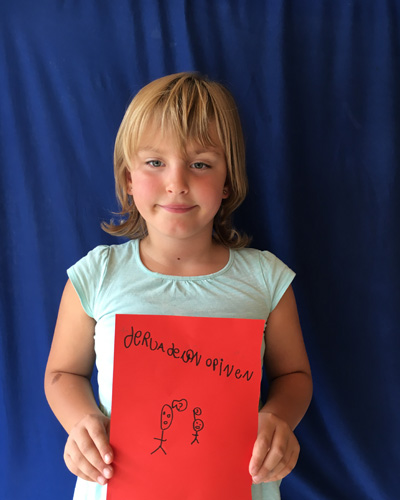 dERUA deBN OPINEN